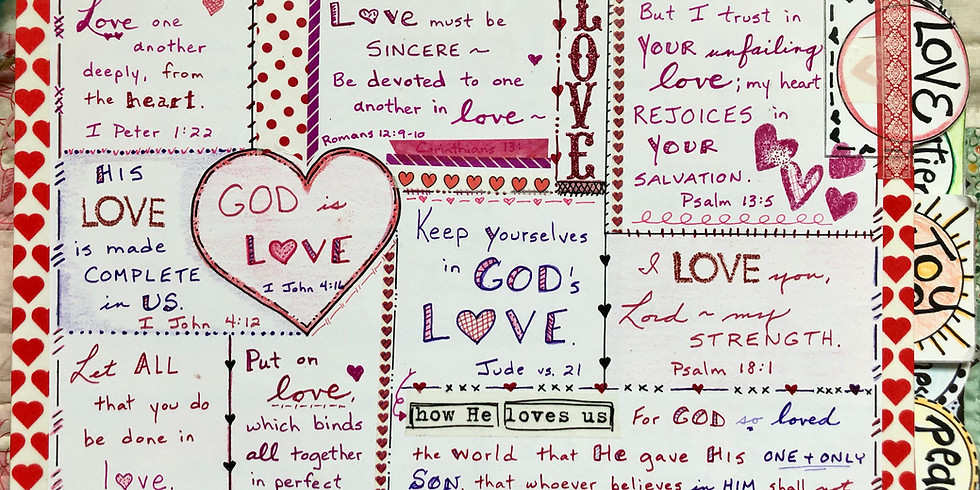 Love one
another
deeply, from
the heart.
I Peter 1:22
Love must be
SINCERE ~
Be devoted to one
another in love ~
Romans 12:9-10
Corinthians 13:
LOVE
But I trust in
YOUR unfailing
love; my heart
REJOICES in
YOUR
SALVATION.
Psalm 13:5
HIS
LOVE
is made
COMPLETE
in US.
I John 4:12
GOD is
LOVE
I John 4:16
Keep yourselves
in GOD's
LOVE.
Jude vs. 21
I LOVE you,
Lord ~ my
STRENGTH.
Psalm 18:1
Let ALL
that you do
be done in
love.
Put on
love,
which binds
all together
in perfect
how He loves us
For GOD so loved
the world that He gave His ONE + ONLY
SON, that whoever believes in HIM shall not
LOVE
Joy